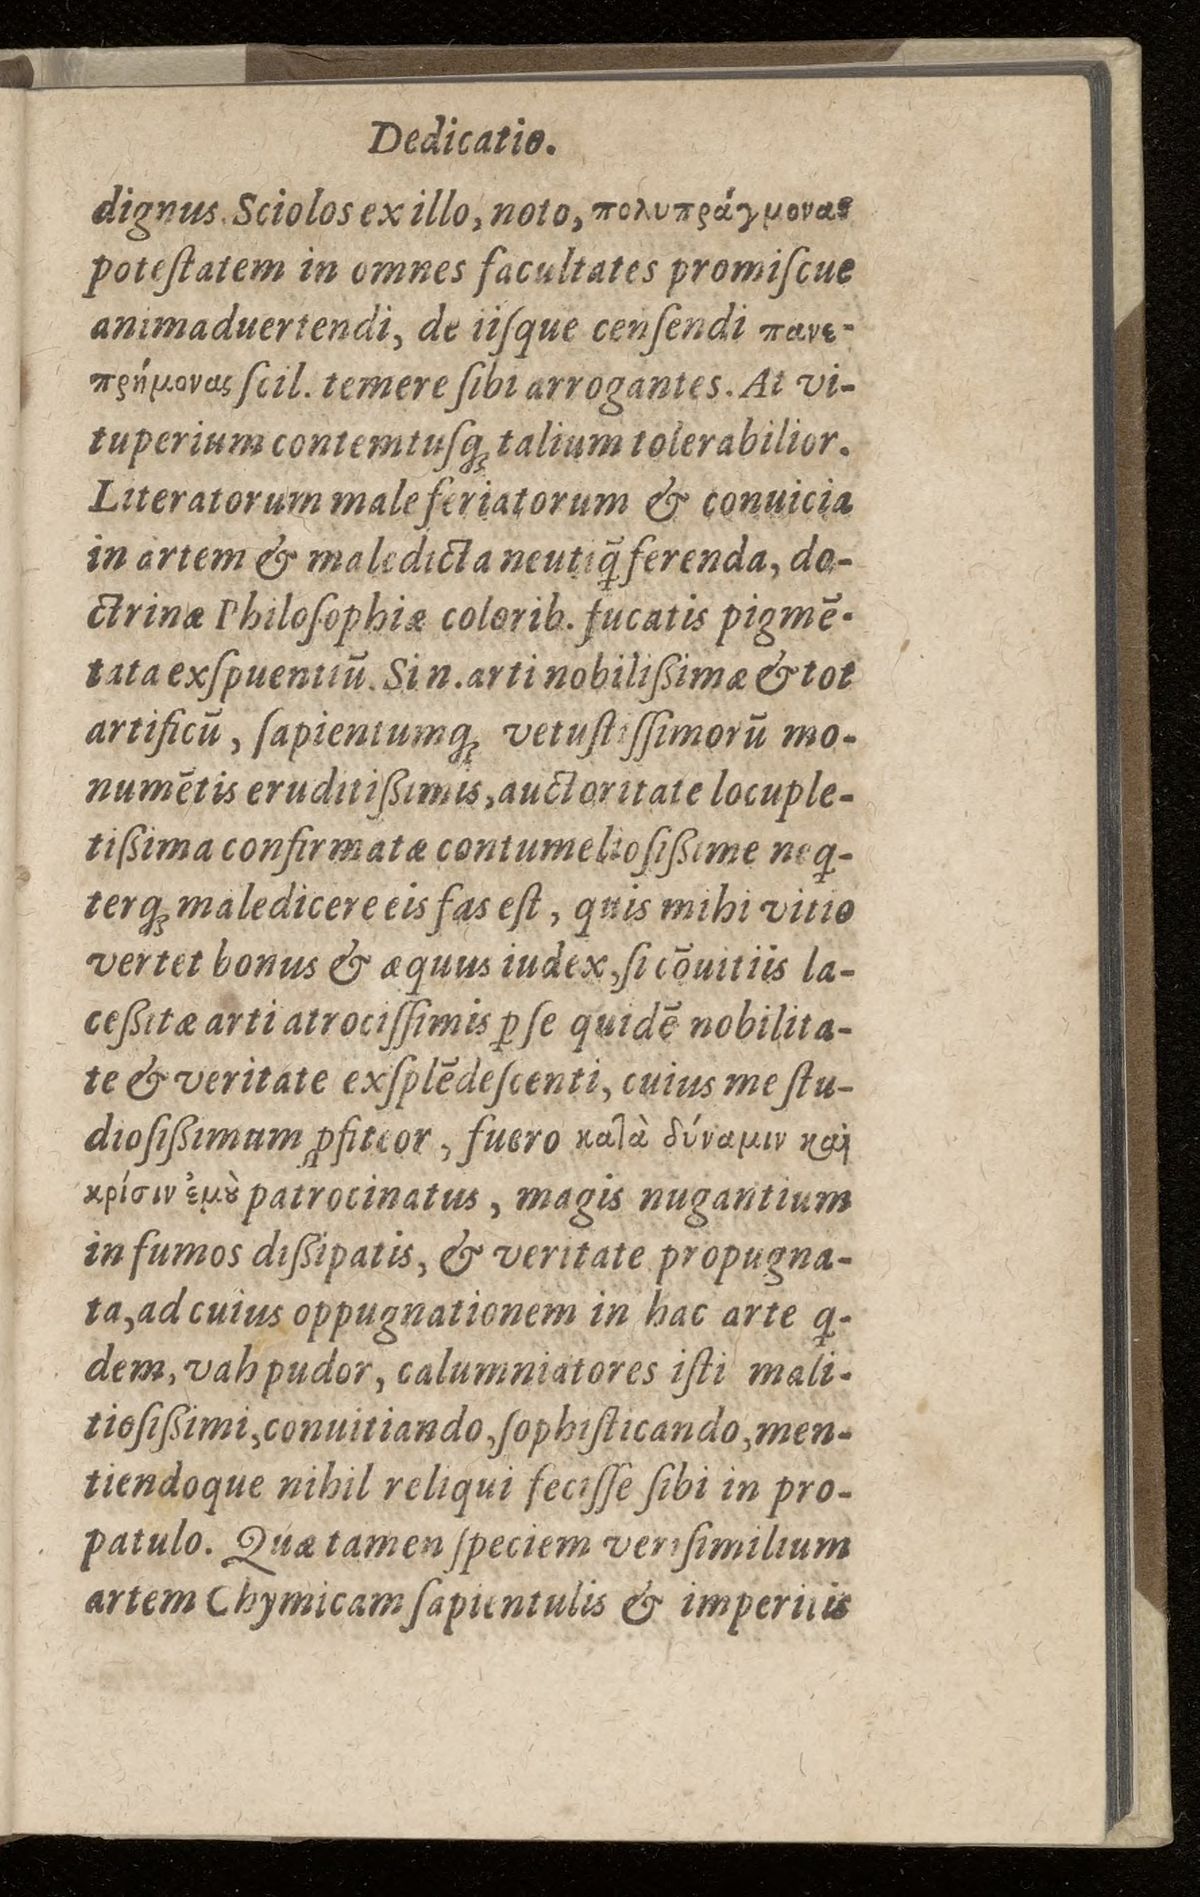 Dedicatio.
dignus. Sciolos ex illo, noto, πολυπράγμονας
poteſtatem in omnes facultates promiſcue
animaduertendi, de iiſque cenſendi πανε-
πρήμονας ſcil. temere ſibi arrogantes. At vi-
tuperium contemtuſq́ꝫ talium tolerabilior.
Literatorum male feriatorum & conuicia
in artem & maledicta neutiq̃ ferenda, do-
ctrinæ Philoſophiæ colorib. fucatis pigmē-
tata exſpuentiū. Sin. arti nobilißimæ & tot
artificū, ſapientumqꝫ vetuſtiſſimorū mo-
numētis eruditißimis, auctoritate locuple-
tißima confirmatæ contumelioſißime neq-
terqꝫ maledicere eis fas eſt, quis mihi vitio
vertet bonus & æquus iudex, ſi cōuitiis la-
ceßitæ arti atrociſſimis ꝑ ſe quidē nobilita-
te & veritate exſplēdeſcenti, cuius me ſtu-
dioſißimum ꝓfiteor, fuero καλὰ δύναμιν καὶ
κρίσιν ἐμȣ̀ patrocinatus, magis nugantium
in fumos dißipatis, & veritate propugna-
ta, ad cuius oppugnationem in hac arte q-
dem, vah pudor, calumniatores iſti mali-
tioſißimi, conuitiando, ſophiſticando, men-
tiendoque nihil reliqui feciſſe ſibi in pro-
patulo. Quæ tamen ſpeciem veriſimilium
artem Chymicam ſapientulis & imperitis